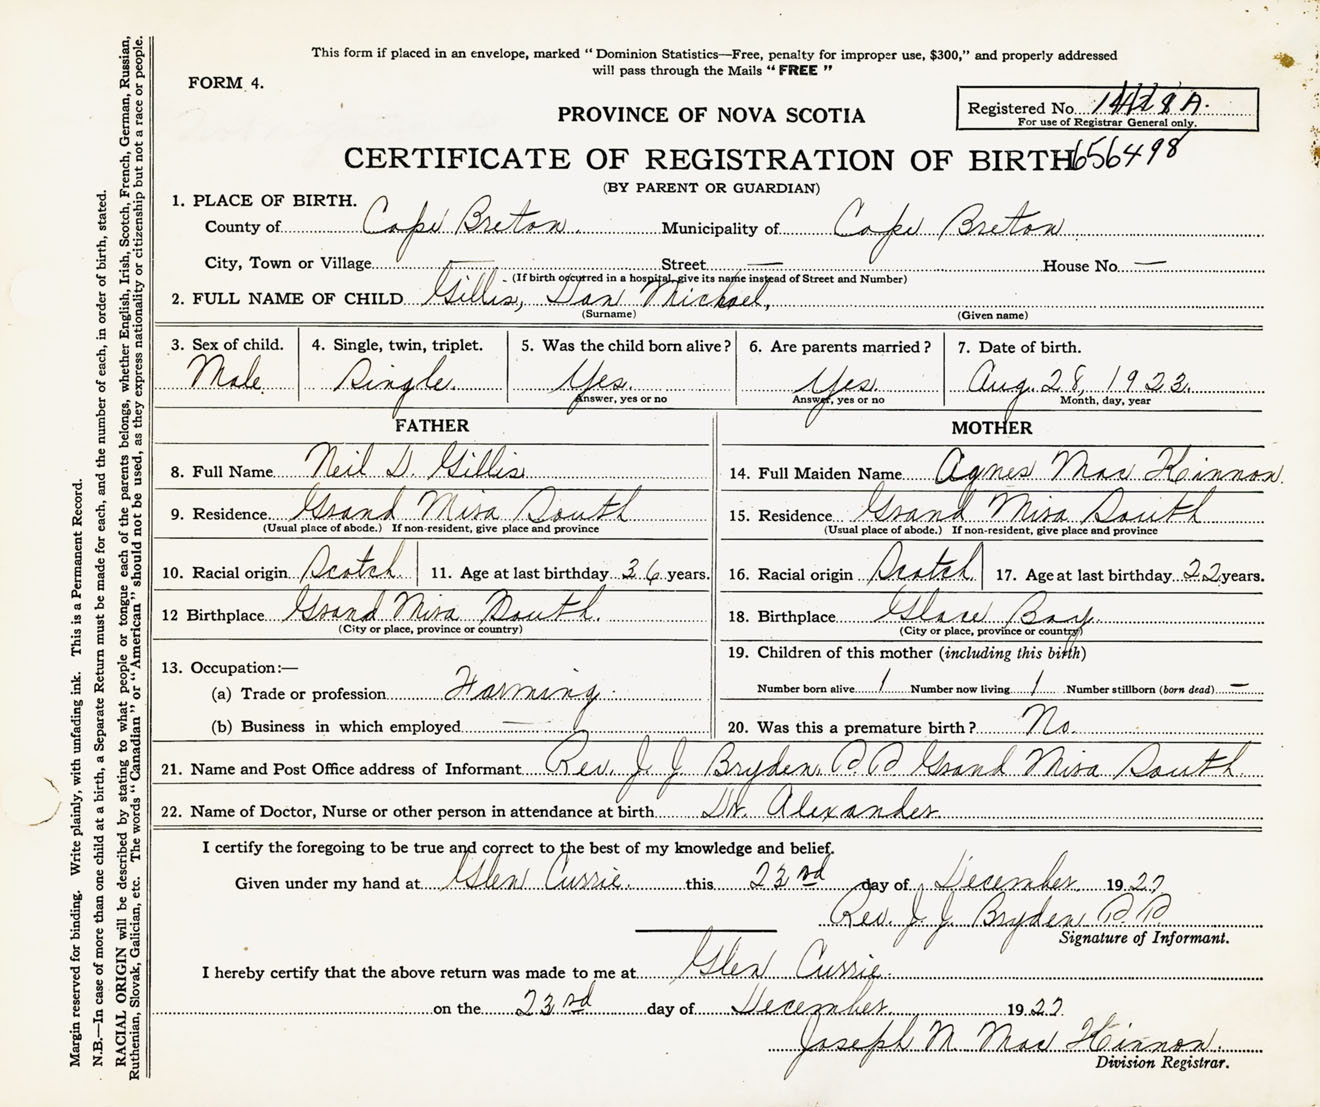 This form if placed in an envelope, marked " Dominion Statistics—Free, penalty for improper use, $300," and properly addressed
will pass through the Mails " FREE "
FORM 4.
Registered No.
For use of Registrar General only.
PROVINCE OF NOVA SCOTIA
CERTIFICATE OF REGISTRATION OF BIRTH 656498
(BY PARENT OR GUARDIAN)
1. PLACE OF BIRTH.
County of Cape Breton. Municipality of Cape Breton
City, Town or Village — Street — House No. —
(If birth occurred in a hospital, give its name instead of Street and Number)
2. FULL NAME OF CHILD Gillis, Dan Michael,
(Surname) (Given name)
3. Sex of child. 4. Single, twin, triplet. 5. Was the child born alive? 6. Are parents married? 7. Date of birth.
Male Single. Yes. Yes. Aug. 28, 1923.
Answer, yes or no Answer, yes or no Month, day, year
FATHER MOTHER
8. Full Name Neil D. Gillis 14. Full Maiden Name Agnes Mac Kinnon.
9. Residence Grand Mira South 15. Residence Grand Mira South
(Usual place of abode.) If non-resident, give place and province (Usual place of abode.) If non-resident, give place and province
10. Racial origin Scotch. 11. Age at last birthday 36 years. 16. Racial origin Scotch 17. Age at last birthday 22 years.
12 Birthplace Grand Mira South. 18. Birthplace Glace Bay.
(City or place, province or country) (City or place, province or country)
13. Occupation:— 19. Children of this mother (including this birth)
(a) Trade or profession Farming. Number born alive 1 Number now living 1 Number stillborn (born dead) —
(b) Business in which employed — 20. Was this a premature birth? No.
21. Name and Post Office address of Informant Rev. J. J Bryden, P P Grand Mira South.
22. Name of Doctor, Nurse or other person in attendance at birth Dr. Alexander.
I certify the foregoing to be true and correct to the best of my knowledge and belief.
Given under my hand at Glen Currie. this 23rd day of December 1927
Rev. J. J. Bryden P. P.
Signature of Informant.
I hereby certify that the above return was made to me at Glen Currie.
on the 23rd day of December. 1927
Joseph N. Mac Kinnon.
Division Registrar.
Margin reserved for binding. Write plainly, with unfading ink. This is a Permanent Record.
N.B.—In case of more than one child at a birth, a Separate Return must be made for each, and the number of each, in order of birth, stated.
RACIAL ORIGIN will be described by stating to what people or tongue each of the parents belongs, whether English, Irish, Scotch, French, German, Russian,
Ruthenian, Slovak, Galician, etc. The words " Canadian " or " American " should not be used, as they express nationality or citizenship but not a race or people.